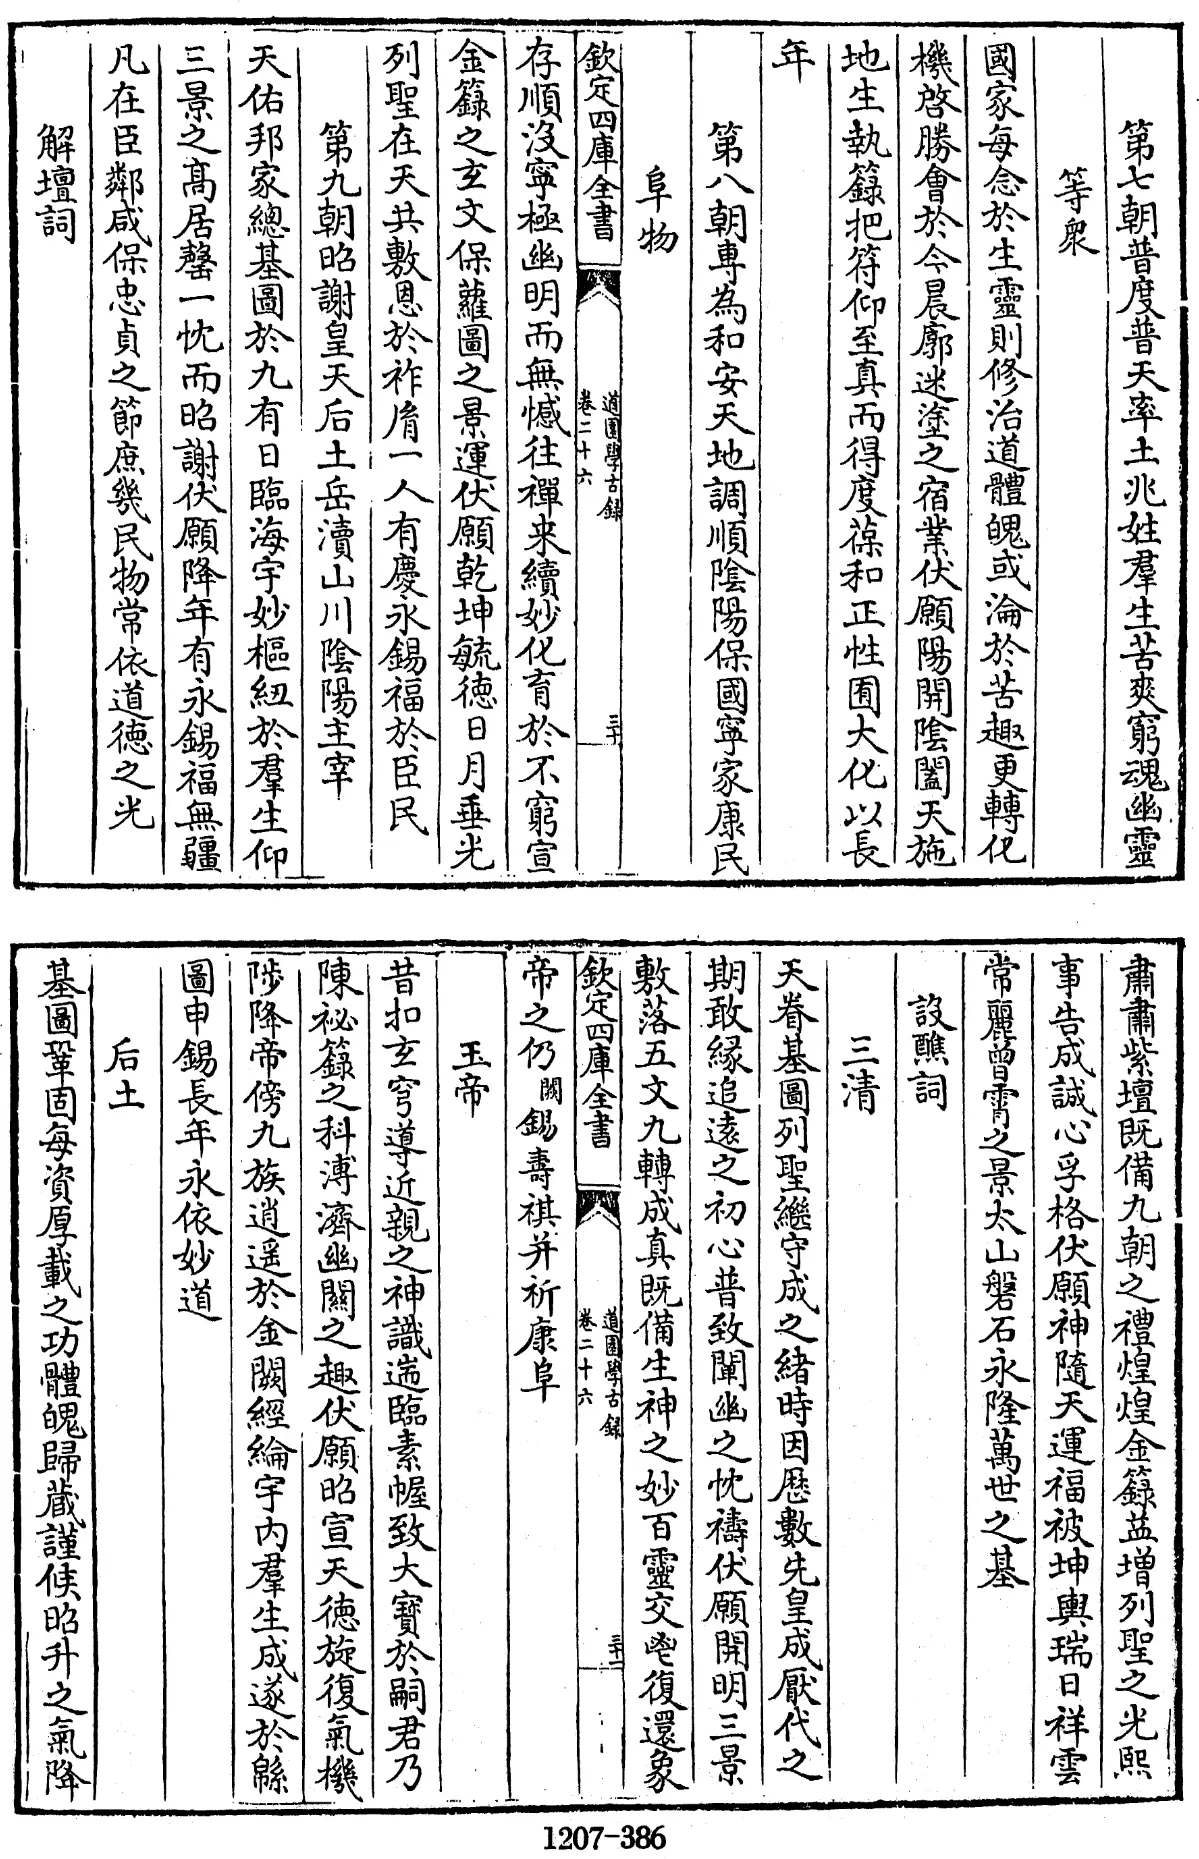 第七朝普度普天率土兆姓羣生苦爽窮魂幽靈
等衆
國家每念於生靈則修治道體魄或淪於苦趣更轉化
機啓勝會於今晨廓迷塗之宿業伏願陽開陰闔天施
地生執籙把符仰至真而得度葆和正性囿大化以長
年
第八朝專為和安天地調順陰陽保國寧家康民
阜物
欽定四庫全書
道園學古錄
卷二十六
三十
存順沒寧極幽明而無憾往禪来續妙化育於不窮宣
金籙之玄文保蘿圖之景運伏願乾坤毓德日月垂光
列聖在天共敷恩於祚胤一人有慶永錫福於臣民
第九朝昭謝皇天后土岳瀆山川陰陽主宰
天佑邦家總基圖於九有日臨海宇妙樞紐於羣生仰
三景之髙居罄一忱而昭謝伏願降年有永錫福無疆
凡在臣鄰咸保忠貞之節庶幾民物常依道德之光
解壇詞
肅肅紫壇既備九朝之禮煌煌金籙益增列聖之光熙
事告成誠心孚格伏願神隨天運福被坤輿瑞日祥雲
常麗曾霄之景太山磐石永隆萬世之基
設醮詞
三清
天眷基圖列聖繼守成之緒時因歷數先皇成厭代之
期敢縁追遠之初心普致闡幽之忱禱伏願開明三景
敷落五文九轉成真既備生神之妙百靈交邕復還象
欽定四庫全書
道園學古錄
卷二十六
三十一
帝之仍闕錫壽祺并祈康阜
玉帝
昔扣玄穹導近親之神識耑臨素幄致大寶於嗣君乃
陳祕籙之科溥濟幽關之趣伏願昭宣天德旋復氣機
陟降帝傍九族逍遥於金闕經綸宇内羣生成遂於緜
圖申錫長年永依妙道
后土
基圖鞏固每資厚載之功體魄歸藏謹俟昭升之氣降
1207-386